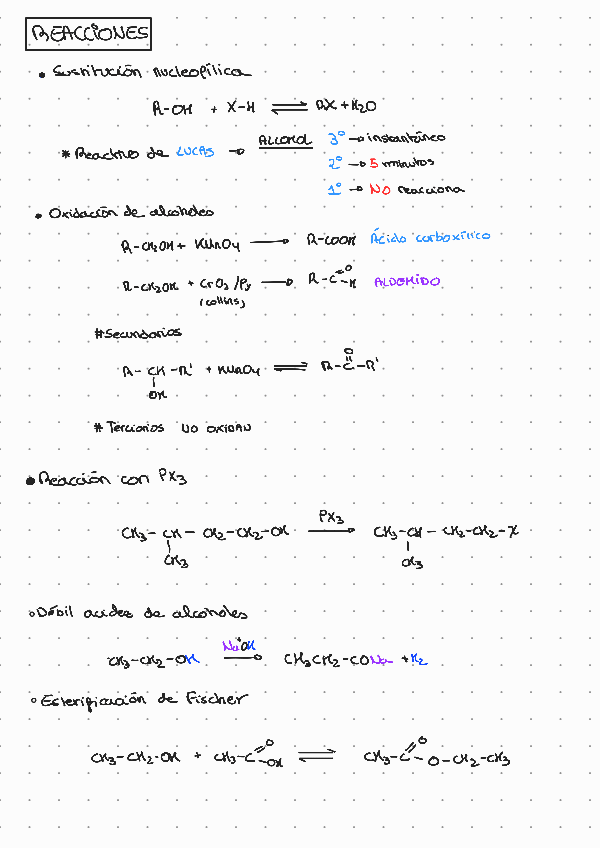 REACCIONES
• Sustitución nucleofílica
R-OH + X-H ⇌ RX + H2O
* Reactivo de LUCAS → ALCOHOL 3º → instantáneo
2º → 5 minutos
1º → NO reacciona
• Oxidación de alcoholes
R-CH2OH + KMnO4 → R-COOH Ácido carboxílico
R-CH2OH + CrO3/Py → R-C=O-H ALDEHÍDO
(collins)
#Secundarios
R-CH-R' + KMnO4 ⇌ R-C-R'
O
OH
# Terciarios NO OXIDAN
• Reacción con PX3
PX3
CH3-CH-CH2-CH2-OH → CH3-CH-CH2-CH2-X
CH3 CH3
◦ Débil acidez de alcoholes
Na+OH
CH3-CH2-OH → CH3CH2-CONa + H2
◦ Esterificación de Fischer
CH3-CH2-OH + CH3-C=O-OH ⇌ CH3-C=O-O-CH2-CH3